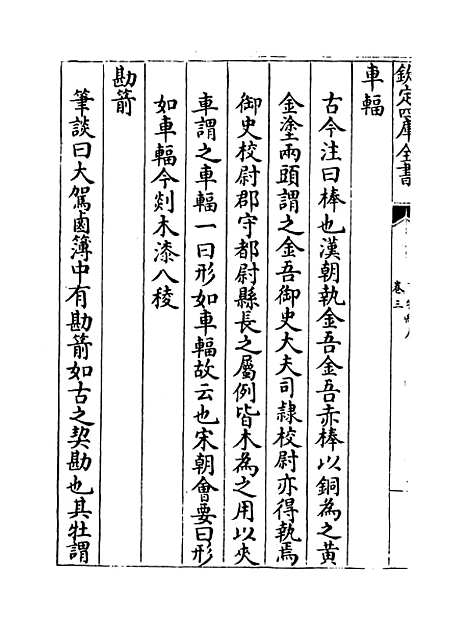 欽定四庫全書
卷三
車輻
古今注曰棒也漢朝執金吾金吾赤棒以銅為之黄
金塗兩頭謂之金吾御史大夫司隸校尉亦得執焉
御史校尉郡守都尉縣長之屬例皆木為之用以夾
車謂之車輻一曰形如車輻故云也宋朝會要曰形
如車輻今剡木漆八稜
勘箭
筆談曰大駕鹵簿中有勘箭如古之契勘也其牡謂